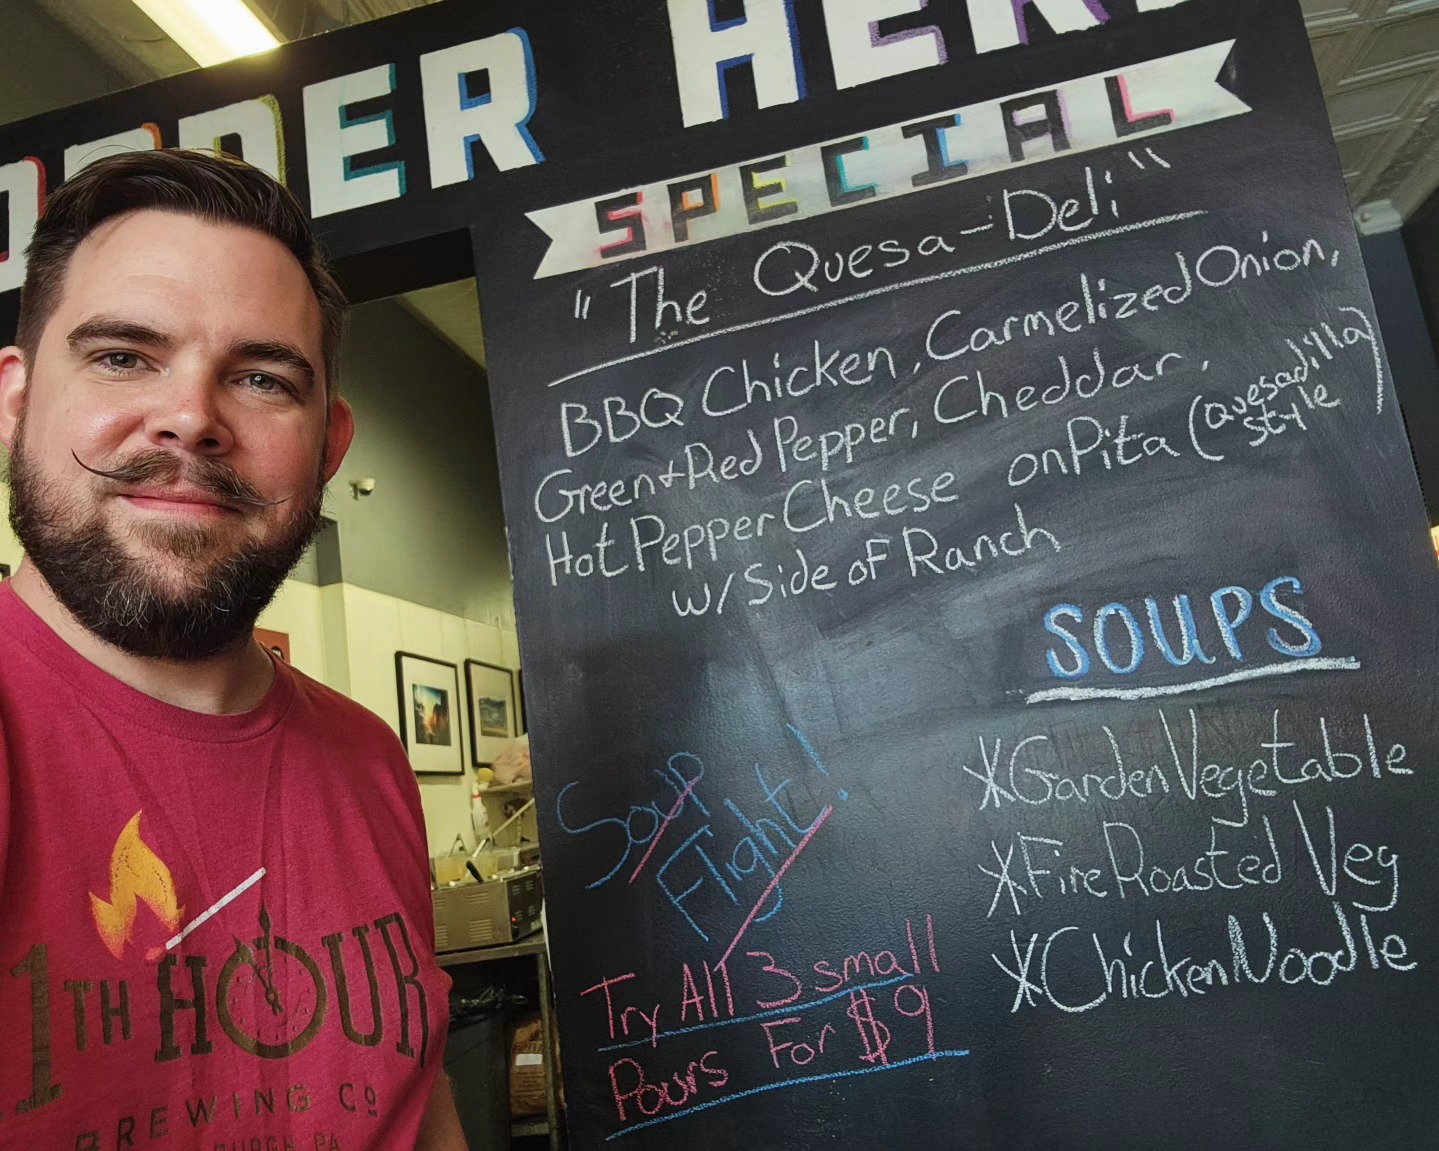 ORDER HERE
SPECIAL
"The Quesa-Deli"
BBQ Chicken, Carmelized Onion,
Green+Red Pepper, Cheddar,
Hot Pepper Cheese on Pita (Quesadilla
style)
w/ Side of Ranch
SOUPS
*Garden Vegetable
*Fire Roasted Veg
*Chicken Noodle
Soup
Flight!
Try All 3 small
Pours For $9
1TH HOUR
BREWING CO
BURGH, PA